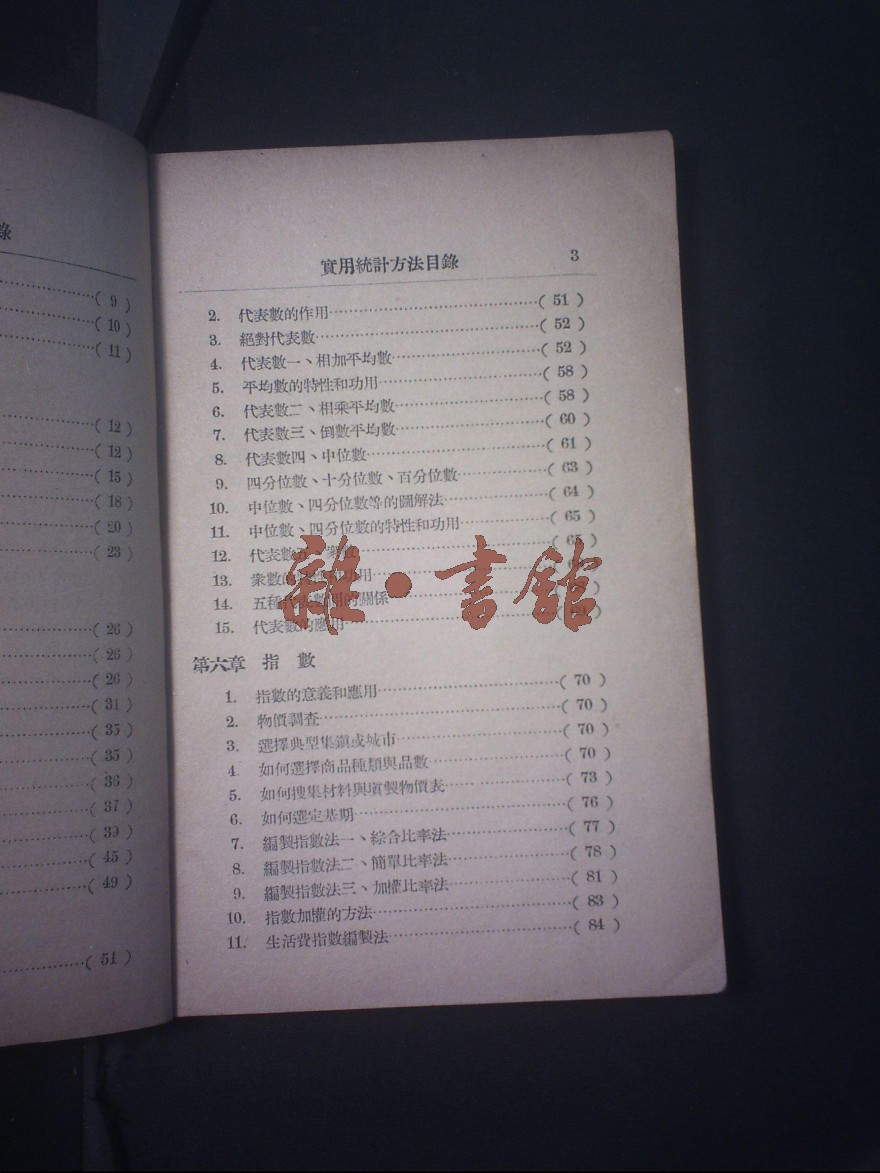 錄
(9)
(10)
(11)
(12)
(12)
(15)
(18)
(20)
(23)
(26)
(26)
(26)
(31)
(35)
(35)
(36)
(37)
(39)
(45)
(49)
(51)
實用統計方法目錄 3
2. 代表數的作用(51)
3. 絕對代表數(52)
4. 代表數一、相加平均數(52)
5. 平均數的特性和功用(58)
6. 代表數二、相乘平均數(58)
7. 代表數三、倒數平均數(60)
8. 代表數四、中位數(61)
9. 四分位數、十分位數、百分位數(63)
10. 中位數、四分位數等的圖解法(64)
11. 中位數、四分位數的特性和功用(65)
12. 代表數五、衆數(65)
13. 衆數的特性和功用
14. 五種代表數間的關係
15. 代表數的應用
雜·書館
第六章 指數
1. 指數的意義和應用(70)
2. 物價調查(70)
3. 選擇典型集鎭或城市(70)
4. 如何選擇商品種類與品數(70)
5. 如何搜集材料與塡製物價表(73)
6. 如何選定基期(76)
7. 編製指數法一、綜合比率法(77)
8. 編製指數法二、簡單比率法(78)
9. 編製指數法三、加權比率法(81)
10. 指數加權的方法(83)
11. 生活費指數編製法(84)